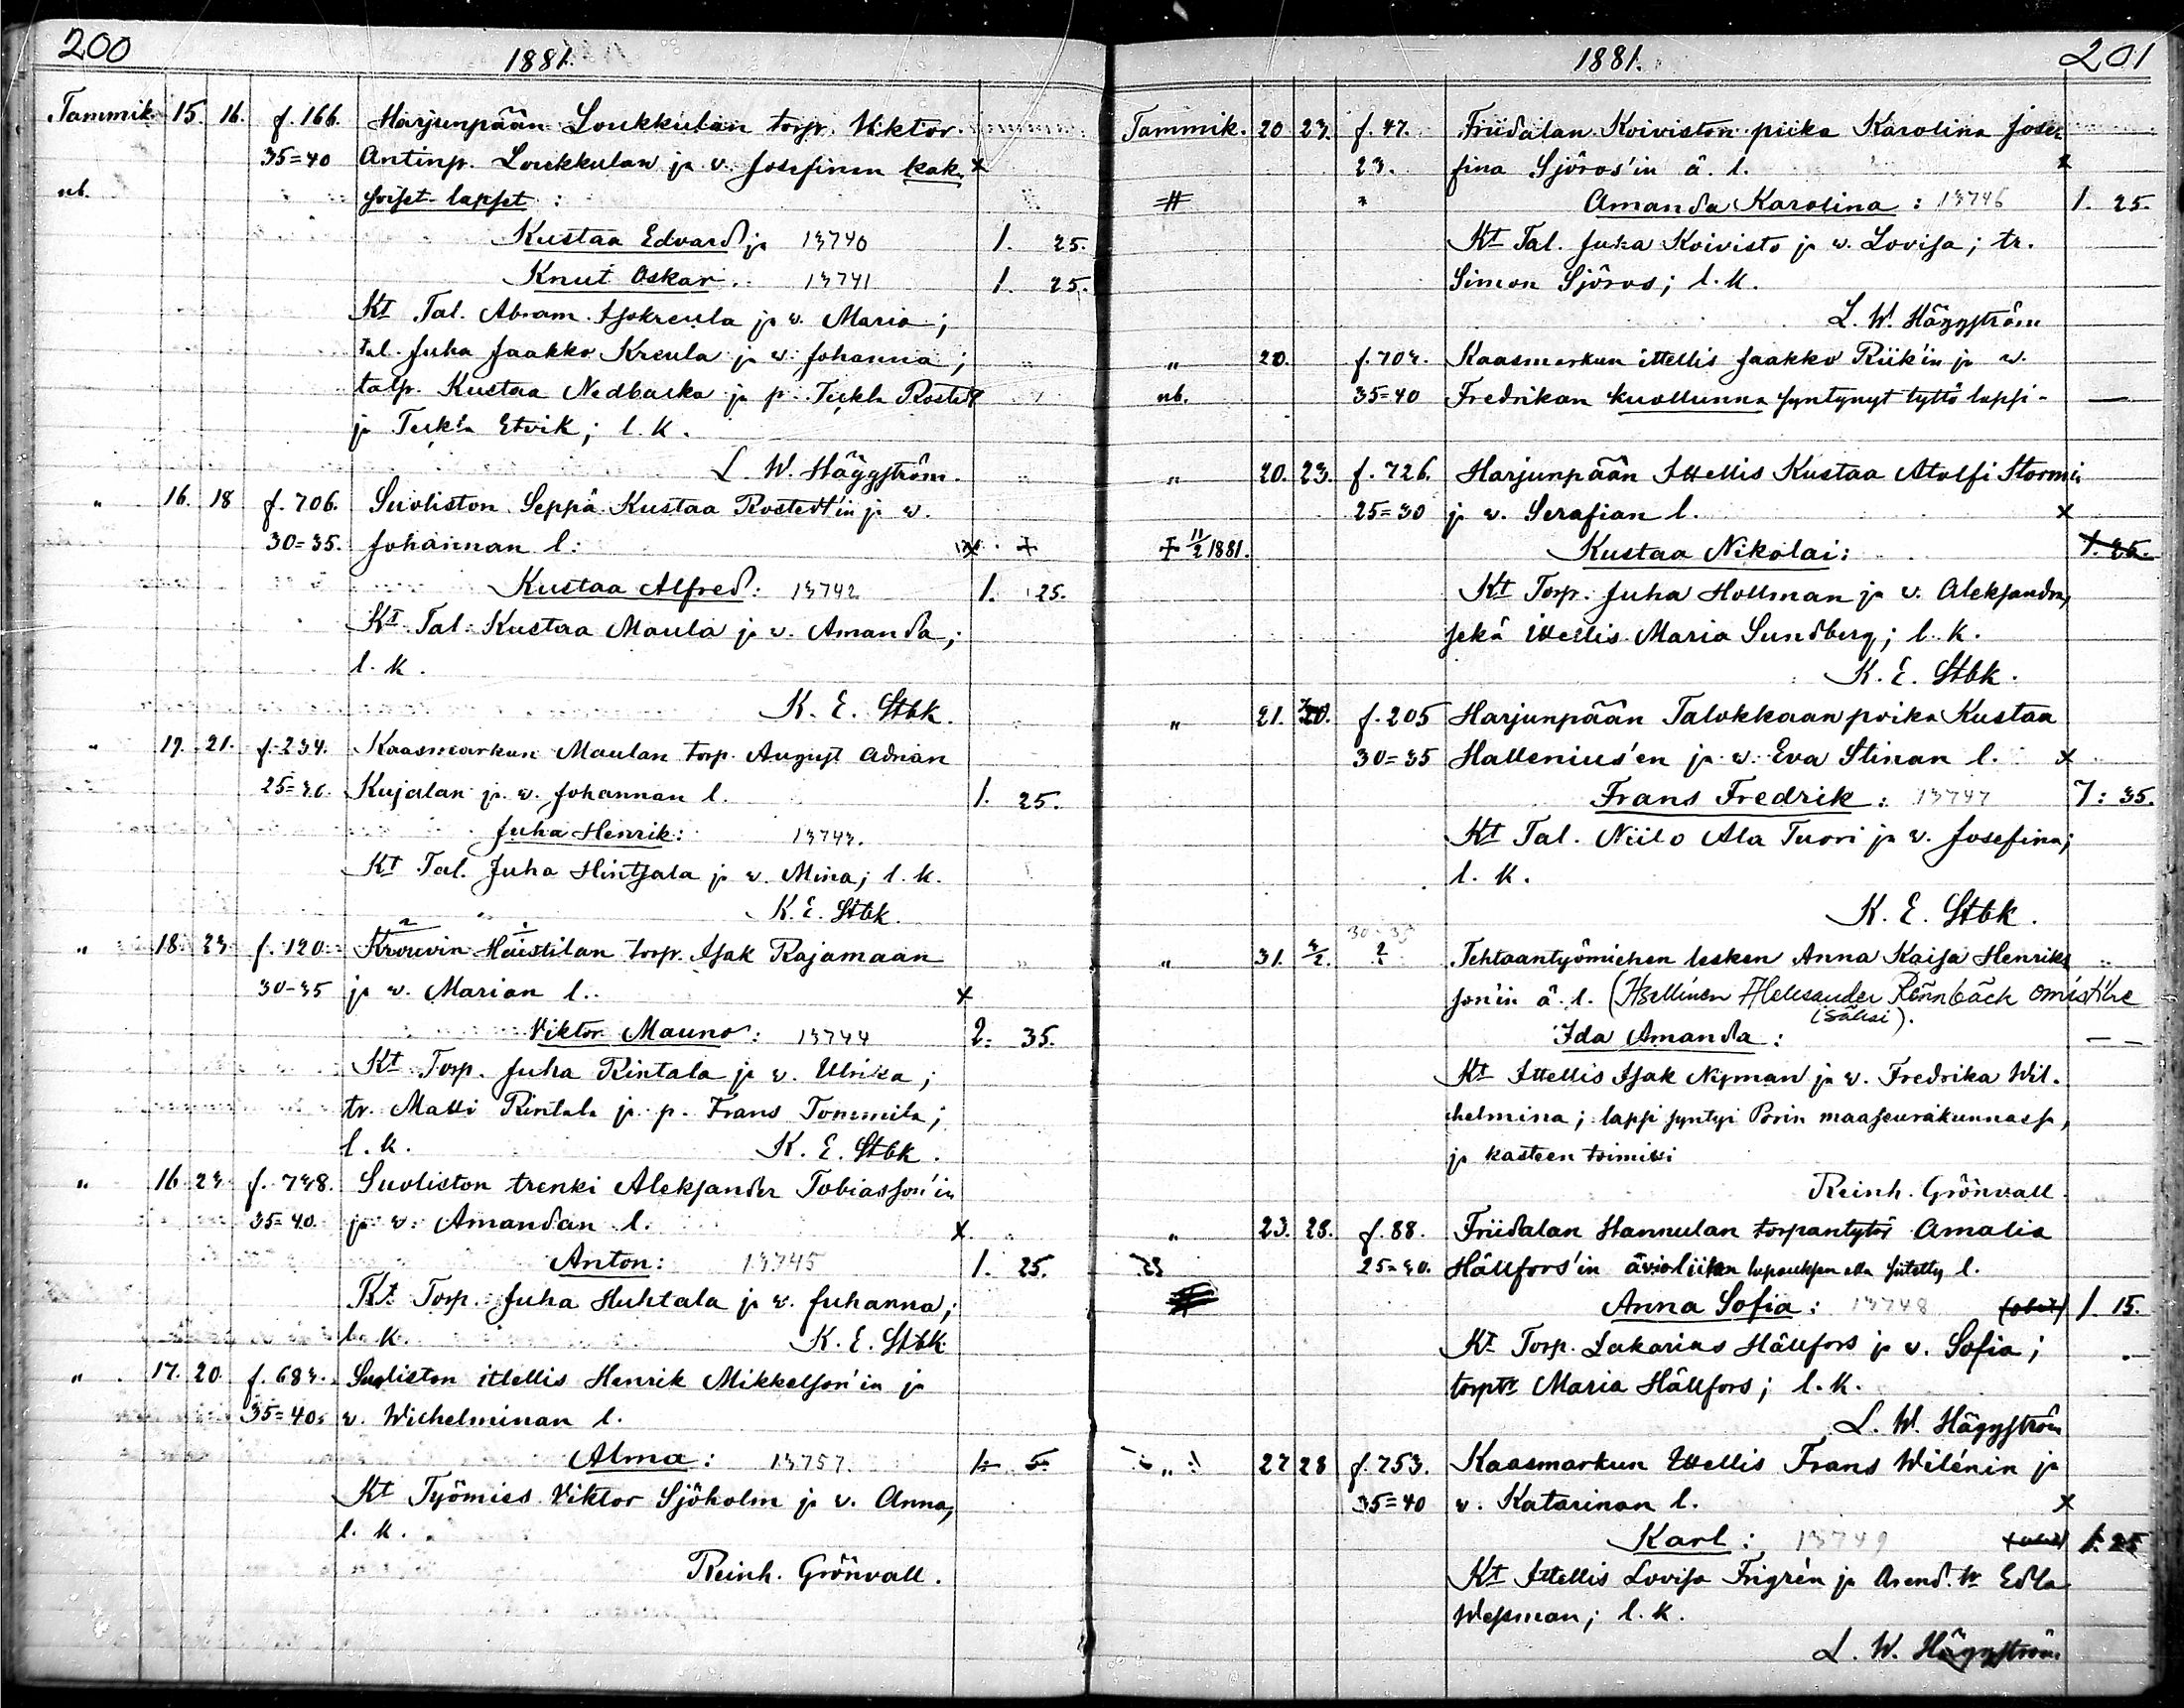 200
1881.
Tammik. 15. 16. f. 166. Harjunpään Loukkulan torp. Viktor
35=40 Antinp. Loukkulan ja v. Josefinan kak x
nb. soiset lapset :
Kustaa Edvard ja 13740 1. 25.
Knut Oskar. 13741 1. 25.
Kt Tal. Abram Isokreula ja v. Maria;
tal. Juha Jaakko Kreula ja v. Johanna;
talp. Kustaa Nedbacka ja p. Tekla Rostedt
ja Tekla Etvik; l. k.
L. W. Häggström.
" 16. 18 f. 706. Suoliston Seppä Kustaa Rostedt'in ja v.
30=35. Johannan l: x +
Kustaa Alfred: 13742 1. 25.
Kt Tal. Kustaa Maula ja v. Amanda;
l. k.
K. E. Stbk.
" 19. 21. f. 234. Kaasmarkun Maulan torp. August Adrian
25=30. Kujalan ja v. Johannan l. 1. 25.
Juha Henrik: 13743.
Kt Tal. Juha Hintsala ja v. Mina; l. k.
K. E. Stbk.
" 18. 23 f. 120. Haistilan torp. Isak Rajamaan
30-35 ja v. Marian l. x
Viktor Mauno: 13744 2. 35.
Kt Torp. Juha Rintala ja v. Ulrika;
tr. Matti Rintala ja p. Frans Tommila;
l. k. K. E. Stbk.
" 16. 23 f. 738. Suoliston trenki Aleksander Tobiasson'in
35=40. ja v. Amandan l. x
Anton: 13745 1. 25.
Kt Torp. Juha Huhtala ja v. Juhanna;
l. k. K. E. Stbk.
" 17. 20 f. 683. Suoliston ittellis Henrik Mikkelson'in ja
35=40. v. Wilhelminan l.
Alma: 13757. 1. 5.
Kt Työmies Viktor Sjöholm ja v. Anna,
l. k.
Reinh. Grönvall.
1881. 201
Tammik. 20 23. f. 47. Friidalan Koiviston piika Karolina Jose
23. fina Sjöros'in ä. l. x
# Amanda Karolina : 13746 1. 25.
Kt Tal. Juha Koivisto ja v. Lovisa; tr.
Simon Sjöros; l. k.
L. W. Häggström
" 20. f. 704. Kaasmarkun ittellis Jaakko Riik'in ja v.
nb. 35=40 Fredrikan kuollunna syntynyt tyttö lapsi - —
" 20. 23. f. 726. Harjunpään Ittellis Kustaa Atolfi Stormin
25=30 ja v. Serafian l. x
+ 11/2 1881. Kustaa Nikolai: 1. 25.
Kt Torp. Juha Hollman ja v. Aleksandra,
sekä ittellis Maria Sundberg; l. k.
K. E. Stbk.
" 21. f. 205 Harjunpään Talokkaan poika Kustaa
30=35 Hallenius'en ja v. Eva Stinan l. x
Frans Fredrik : 13747 7: 35.
Kt Tal. Niilo Ala Tuori ja v. Josefina;
l. k.
K. E. Stbk.
30-35
" 31. ? Tehtaantyömiehen lesken Anna Kaisa Henriks
son'in ä. l. (Itsellinen Aleksander Rönnbäck omisti lhe
isäksi).
Ida Amanda : — —
Kt Ittellis Isak Nyman ja v. Fredrika Wil-
helmina; lapsi syntyi Porin maaseurakunnassa,
ja kasteen toimitti
Reinh. Grönvall.
" 23. 28. f. 88. Friidalan Hannulan torpantytön Amalia
25=30. Hällfors'in avioliiton lupauksen alla siitetty l.
Anna Sofia : 13748 1. 15.
Kt Torp. Sakarias Hällfors ja v. Sofia;
torptr Maria Hällfors; l. k.
L. W. Häggström
" 27 28 f. 753. Kaasmarkun Ittellis Frans Wilénin ja
35=40 v. Katarinan l. x
Karl : 13749 1. 25
Kt Ittellis Lovisa Frigrén ja Arend. Edla
Wessman; l. k.
L. W. Häggström